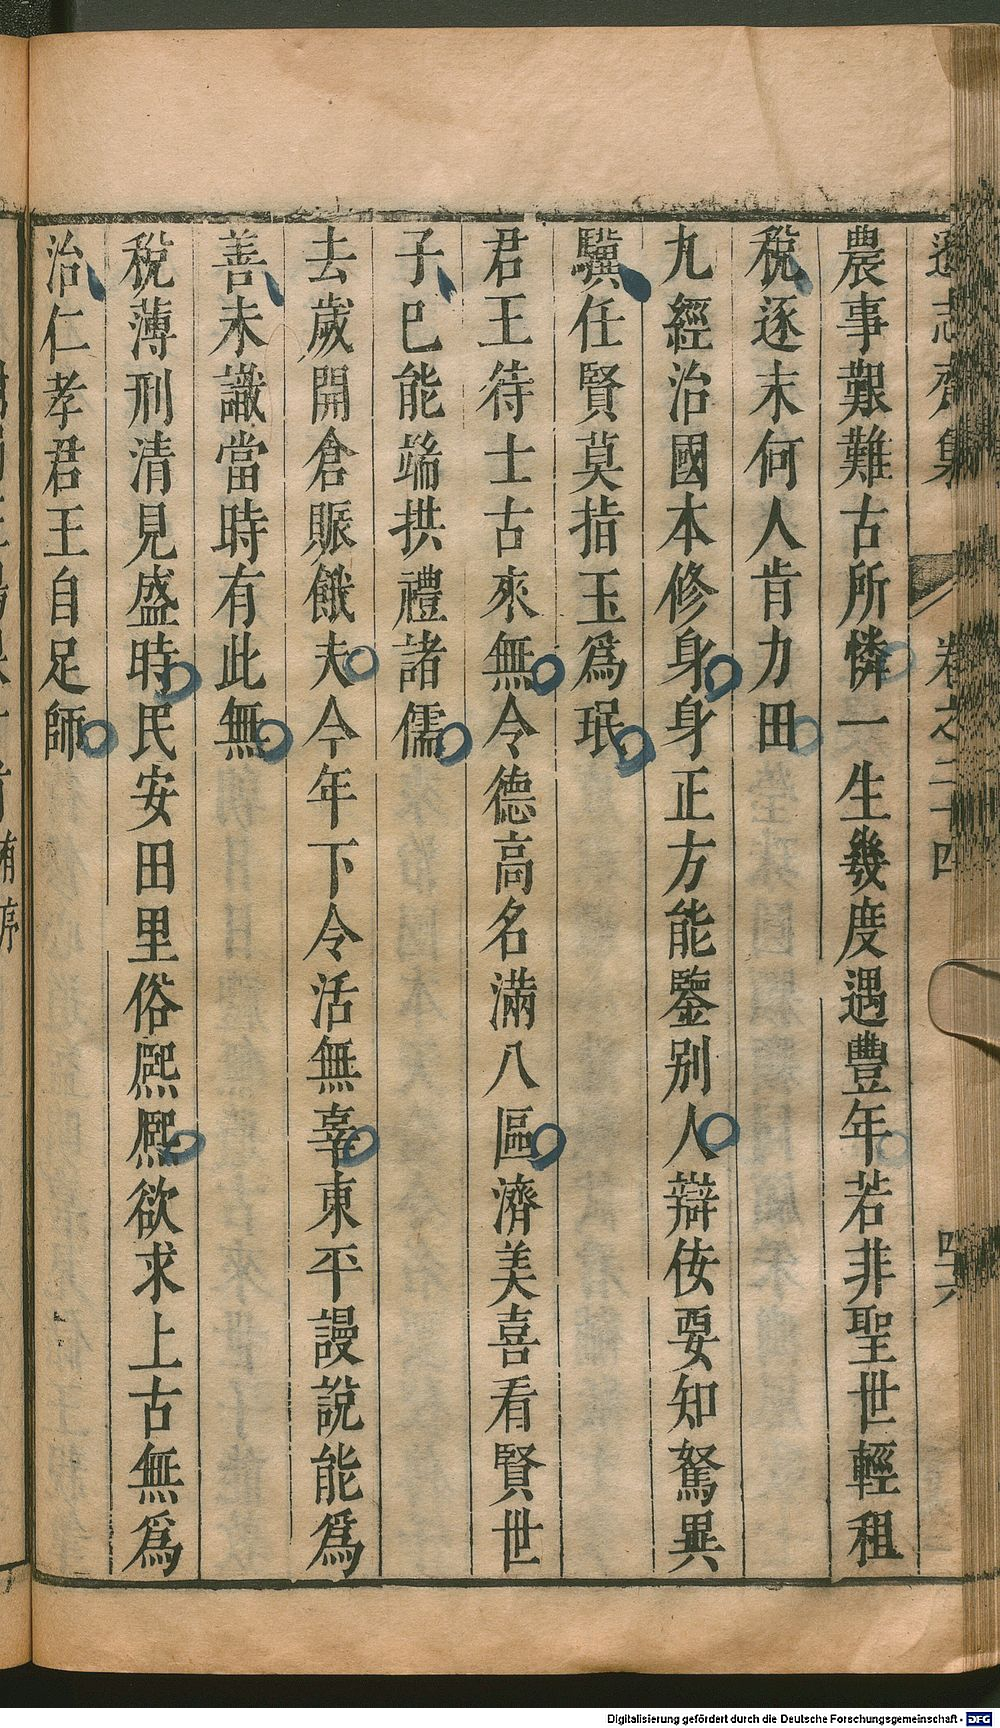 遜志齋集 卷之二十四 四六
農事艱難古所憐一生幾度遇豐年若非聖世輕租
稅逐末何人肯力田
九經治國本修身身正方能鑒別人辯侫要知駑異
驥任賢莫指玉爲珉
君王待士古來無令德高名滿八區濟美喜看賢世
子已能端拱禮諸儒
去歲開倉賑餓夫今年下令活無辜東平謾說能爲
善未識當時有此無
稅薄刑清見盛時民安田里俗熈熈欲求上古無爲
治仁孝君王自足師
Digitalisierung gefördert durch die Deutsche Forschungsgemeinschaft - DFG